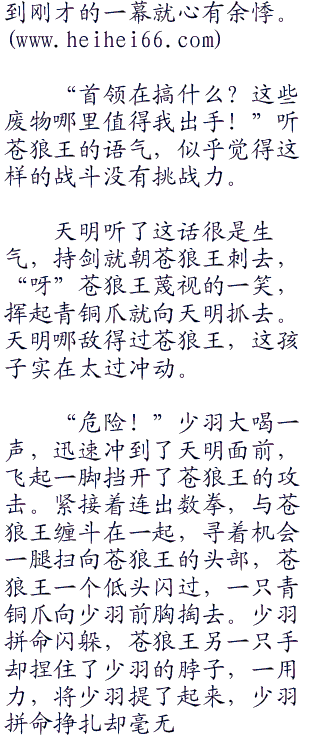 到刚才的一幕就心有余悸。
(www.heihei66.com)
“首领在搞什么？这些
废物哪里值得我出手！”听
苍狼王的语气，似乎觉得这
样的战斗没有挑战力。
天明听了这话很是生
气，持剑就朝苍狼王刺去，
“呀”苍狼王蔑视的一笑，
挥起青铜爪就向天明抓去。
天明哪敌得过苍狼王，这孩
子实在太过冲动。
“危险！”少羽大喝一
声，迅速冲到了天明面前，
飞起一脚挡开了苍狼王的攻
击。紧接着连出数拳，与苍
狼王缠斗在一起，寻着机会
一腿扫向苍狼王的头部，苍
狼王一个低头闪过，一只青
铜爪向少羽前胸掏去。少羽
拼命闪躲，苍狼王另一只手
却捏住了少羽的脖子，一用
力，将少羽提了起来，少羽
拼命挣扎却毫无